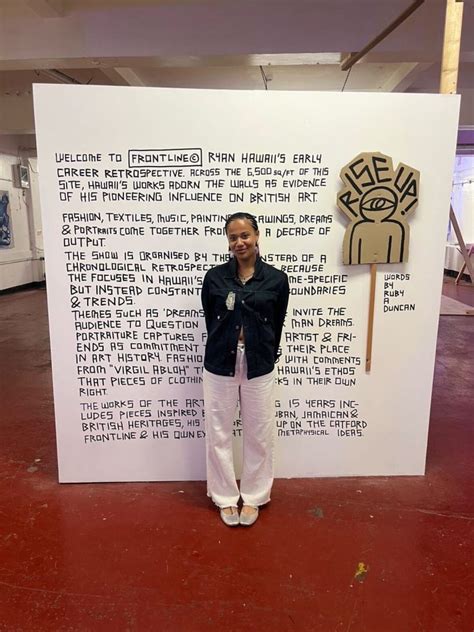 WELCOME TO FRONTLINE© RYAN HAWAII'S EARLY
CAREER RETROSPECTIVE. ACROSS THE 6,500 SQ/FT OF THIS
SITE, HAWAII'S WORKS ADORN THE WALLS AS EVIDENCE
OF HIS PIONEERING INFLUENCE ON BRITISH ART.
FASHION, TEXTILES, MUSIC, PAINTING DRAWINGS, DREAMS
& PORTRAITS COME TOGETHER FRO A DECADE OF
OUTPUT.
THE SHOW IS ORGANISED BY INSTEAD OF A
CHRONOLOGICAL RETROSPEC BECAUSE
THE FOCUSES IN HAWAII'S ME-SPECIFIC
BUT INSTEAD CONSTANT BOUNDARIES
& TRENDS.
THEMES SUCH AS 'DREAMS INVITE THE
AUDIENCE TO QUESTION A MAN DREAMS.
PORTRAITURE CAPTURES ARTIST & FRI-
ENDS AS COMMITMENT THEIR PLACE
IN ART HISTORY. FASHIO WITH COMMENTS
FROM "VIRGIL ABLOH" HAWAII'S ETHOS
THAT PIECES OF CLOTH KS IN THEIR OWN
RIGHT.
THE WORKS OF THE ART G 15 YEARS INC-
LUDES PIECES INSPIRED BAN, JAMAICAN &
BRITISH HERITAGES, HIS UP ON THE CATFORD
FRONTLINE & HIS OWN EX METAPHYSICAL IDEAS.
RISE UP!
WORDS
BY
RUBY
A
DUNCAN